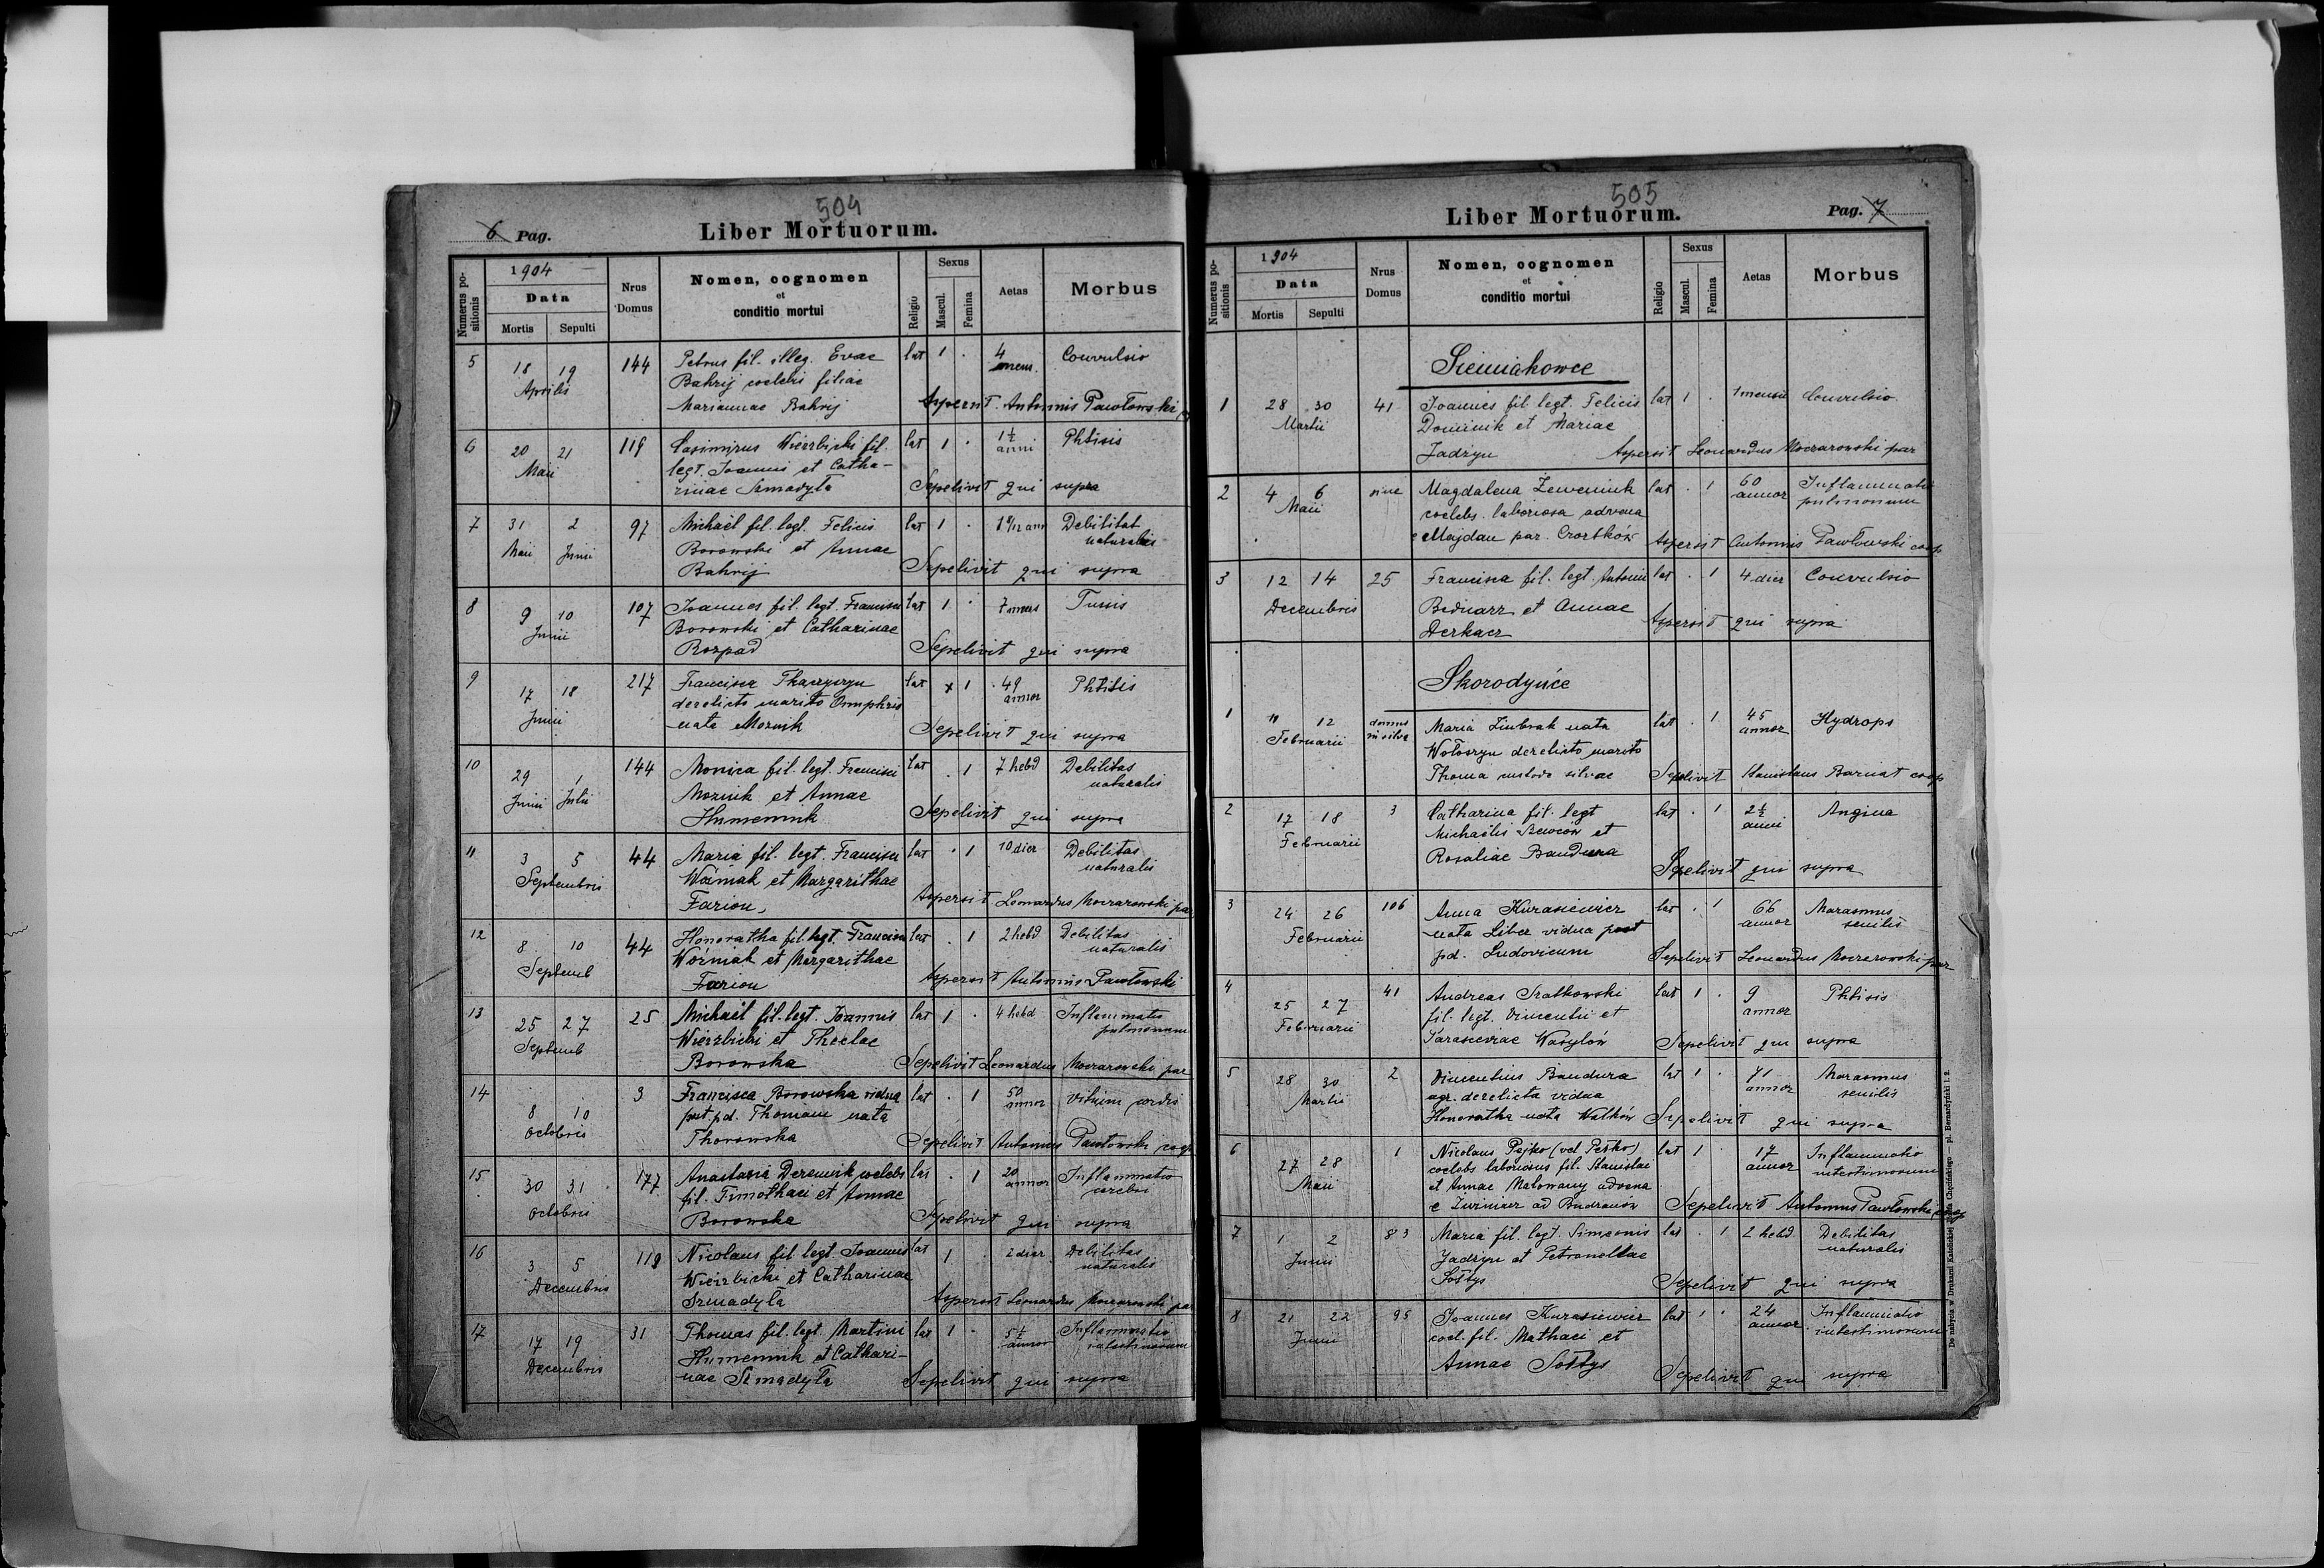 504
6 Pag.
Liber Mortuorum.
Numerus po-
sitionis
1904
Data
Mortis Sepulti
Nrus
Domus
Nomen, cognomen
et
conditio mortui
Religio
Sexus
Mascul.
Femina
Aetas
Morbus
5 18 19 144 Petrus fil. illeg. Evae lat 1 . 4 Convulsio
Aprilis Bahrij coelebs filiae mens.
Mariannae Bahrij Aspersit Antonius Pawłowski
6 20 21 119 Casimirus Wierzbicki fil. lat 1 . 1½ Phtisis
Maii legt. Joannis et Catha- anni
rinae Szmadyła Sepelivit qui supra
7 31 2 97 Michaël fil. legt. Felicis lat 1 . Debilitas
Maii Junii Borowski et Annae naturalis
Bahrij Sepelivit qui supra
8 9 10 107 Joannes fil. legt. Francisci lat 1 . 7 mens Tussis
Junii Borowski et Catharinae
Rozpad Sepelivit qui supra
9 17 18 217 Francisca Tkaczyszyn lat x 1 . 49 Phtisis
Junii derelicto marito Onuphrio annor
nata Moźnik Sepelivit qui supra
10 29 1 144 Monica fil. legt. Francisci lat . 1 7 hebd Debilitas
Junii Julii Moźnik et Annae naturalis
Humeniuk Sepelivit qui supra
11 3 5 44 Maria fil. legt. Francisci lat . 1 10 dier Debilitas
Septembris Woźniak et Margarithae naturalis
Farion Aspersit Leonardus Moczarowski par
12 8 10 44 Honoratha fil. legt. Francisci lat . 1 2 hebd Debilitas
Septemb Woźniak et Margarithae naturalis
Farion Aspersit Antonius Pawłowski
13 25 27 25 Michaël fil. legt. Joannis lat 1 . 4 hebd Inflammatio
Septemb Wierzbicki et Theclae pulmonum
Borowska Sepelivit Leonardus Moczarowski par
14 8 10 3 Francisca Borowska vidua lat . 1 50 Vitium cordis
Octobris post pd. Thomam nata annor
Thorowska Sepelivit Antonius Pawłowski coop
15 30 31 177 Anastasia Dereniuk coelebs lat . 1 20 Inflammatio
Octobris fil. Timothaei et Annae annor cerebri
Borowska Sepelivit qui supra
16 3 5 119 Nicolaus fil. legt. Joannis lat 1 . 2 dier Debilitas
Decembris Wierzbicki et Catharinae naturalis
Szmadyła Aspersit Leonardus Moczarowski par
17 17 19 31 Thomas fil. legt. Martini lat 1 . 5½ Inflammatio
Decembris Humeniuk et Cathari- annor intestinorum
nae Szmadyła Sepelivit qui supra
505
Liber Mortuorum.
Pag. 7
Numerus po-
sitionis
1904
Data
Mortis Sepulti
Nrus
Domus
Nomen, cognomen
et
conditio mortui
Religio
Sexus
Mascul.
Femina
Aetas
Morbus
Siemiakowce
1 28 30 41 Joannes fil. legt. Felicis lat 1 . 1 mensis Convulsio
Martii Dominik et Mariae
Jadzyn Aspersit Leonardus Moczarowski par
2 4 6 sine Magdalena Zeweniuk lat . 1 60 Inflammatio
Maii coelebs laboriosa advena annor pulmonum
e Majdan par. Czortków Aspersit Antonius Pawłowski coop
3 12 14 25 Francisca fil. legt. Antonii lat . 1 4 dier Convulsio
Decembris Bednarz et Annae
Derkacz Aspersit qui supra
Skorodyńce
1 11 12 domus Maria Zimbrak nata lat . 1 45 Hydrops
Februarii in silva Wołoszyn derelicto marito annor
Thoma custode silvae Sepelivit Stanislaus Barnat coop
2 17 18 3 Catharina fil. legt lat . 1 2½ Angina
Februarii Michaëlis Szewców et anni
Rosaliae Bandura Sepelivit qui supra
3 24 26 106 Anna Kurasiewicz lat . 1 66 Marasmus
Februarii nata Liber vidua post annor senilis
pd. Ludovicum Sepelivit Leonardus Moczarowski par
4 25 27 41 Andreas Szatkowski lat 1 . 9 Phtisis
Februarii fil. legt. Vincentii et annor
Parasceviae Wasylów Sepelivit qui supra
5 28 30 2 Vincentius Bandura lat 1 . 71 Marasmus
Martii agr. derelicta vidua annor senilis
Honoratha nata Watków Sepelivit qui supra
6 27 28 1 Nicolaus Pejko (vel Peśko) lat 1 17 Inflammatio
Maii coelebs laboriosus fil. Stanislai annor intestinorum
et Annae Malowany advena
e Zwiniacz ad Budzanów Sepelivit Antonius Pawłowski coop
7 1 2 83 Maria fil. legt. Simeonis lat . 1 2 hebd Debilitas
Junii Jadzyn et Petronellae naturalis
Sołtys Sepelivit qui supra
8 21 22 95 Joannes Kurasiewicz lat 1 . 24 Inflammatio
Junii coel. fil. Mathaei et annor intestinorum
Annae Sołtys Sepelivit qui supra